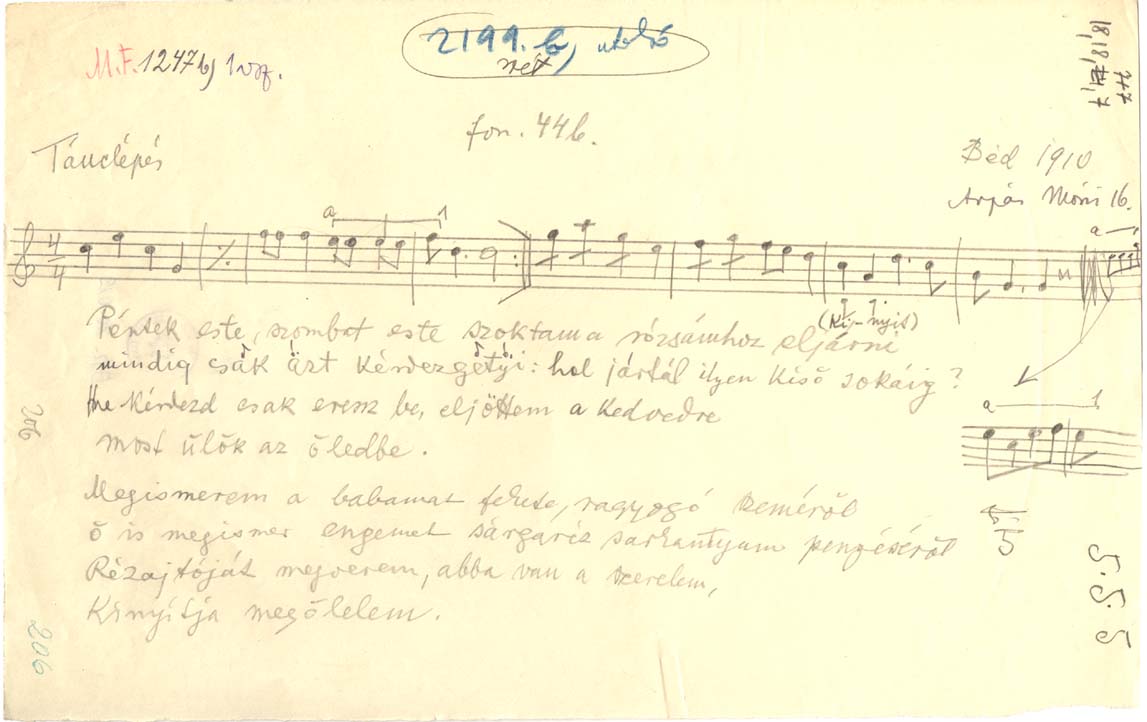 2199. b, utolsó
M.F. 1247 b,
fon. 44 b.
Tánclépés
Béd 1910
Árpás Móni 16.
a 1
a
4
4
(Ki-nyit)
Péntek este, szombat este szoktam a rózsámhoz eljárni
mindig csak azt kérdezgetyi: hol jártál ilyen késő sokáig?
Ne kérdezd csak eressz be, eljöttem a kedvedre
most ülök az öledbe.
a 1
Megismerem a babamat fekete, ragyogó szeméről
ő is megismer engemet sárgaréz sarkantyum pengéséről
Rézajtóját megverem, abba van a szerelem,
Kinyitja megölelem.
206
206
5.5.5